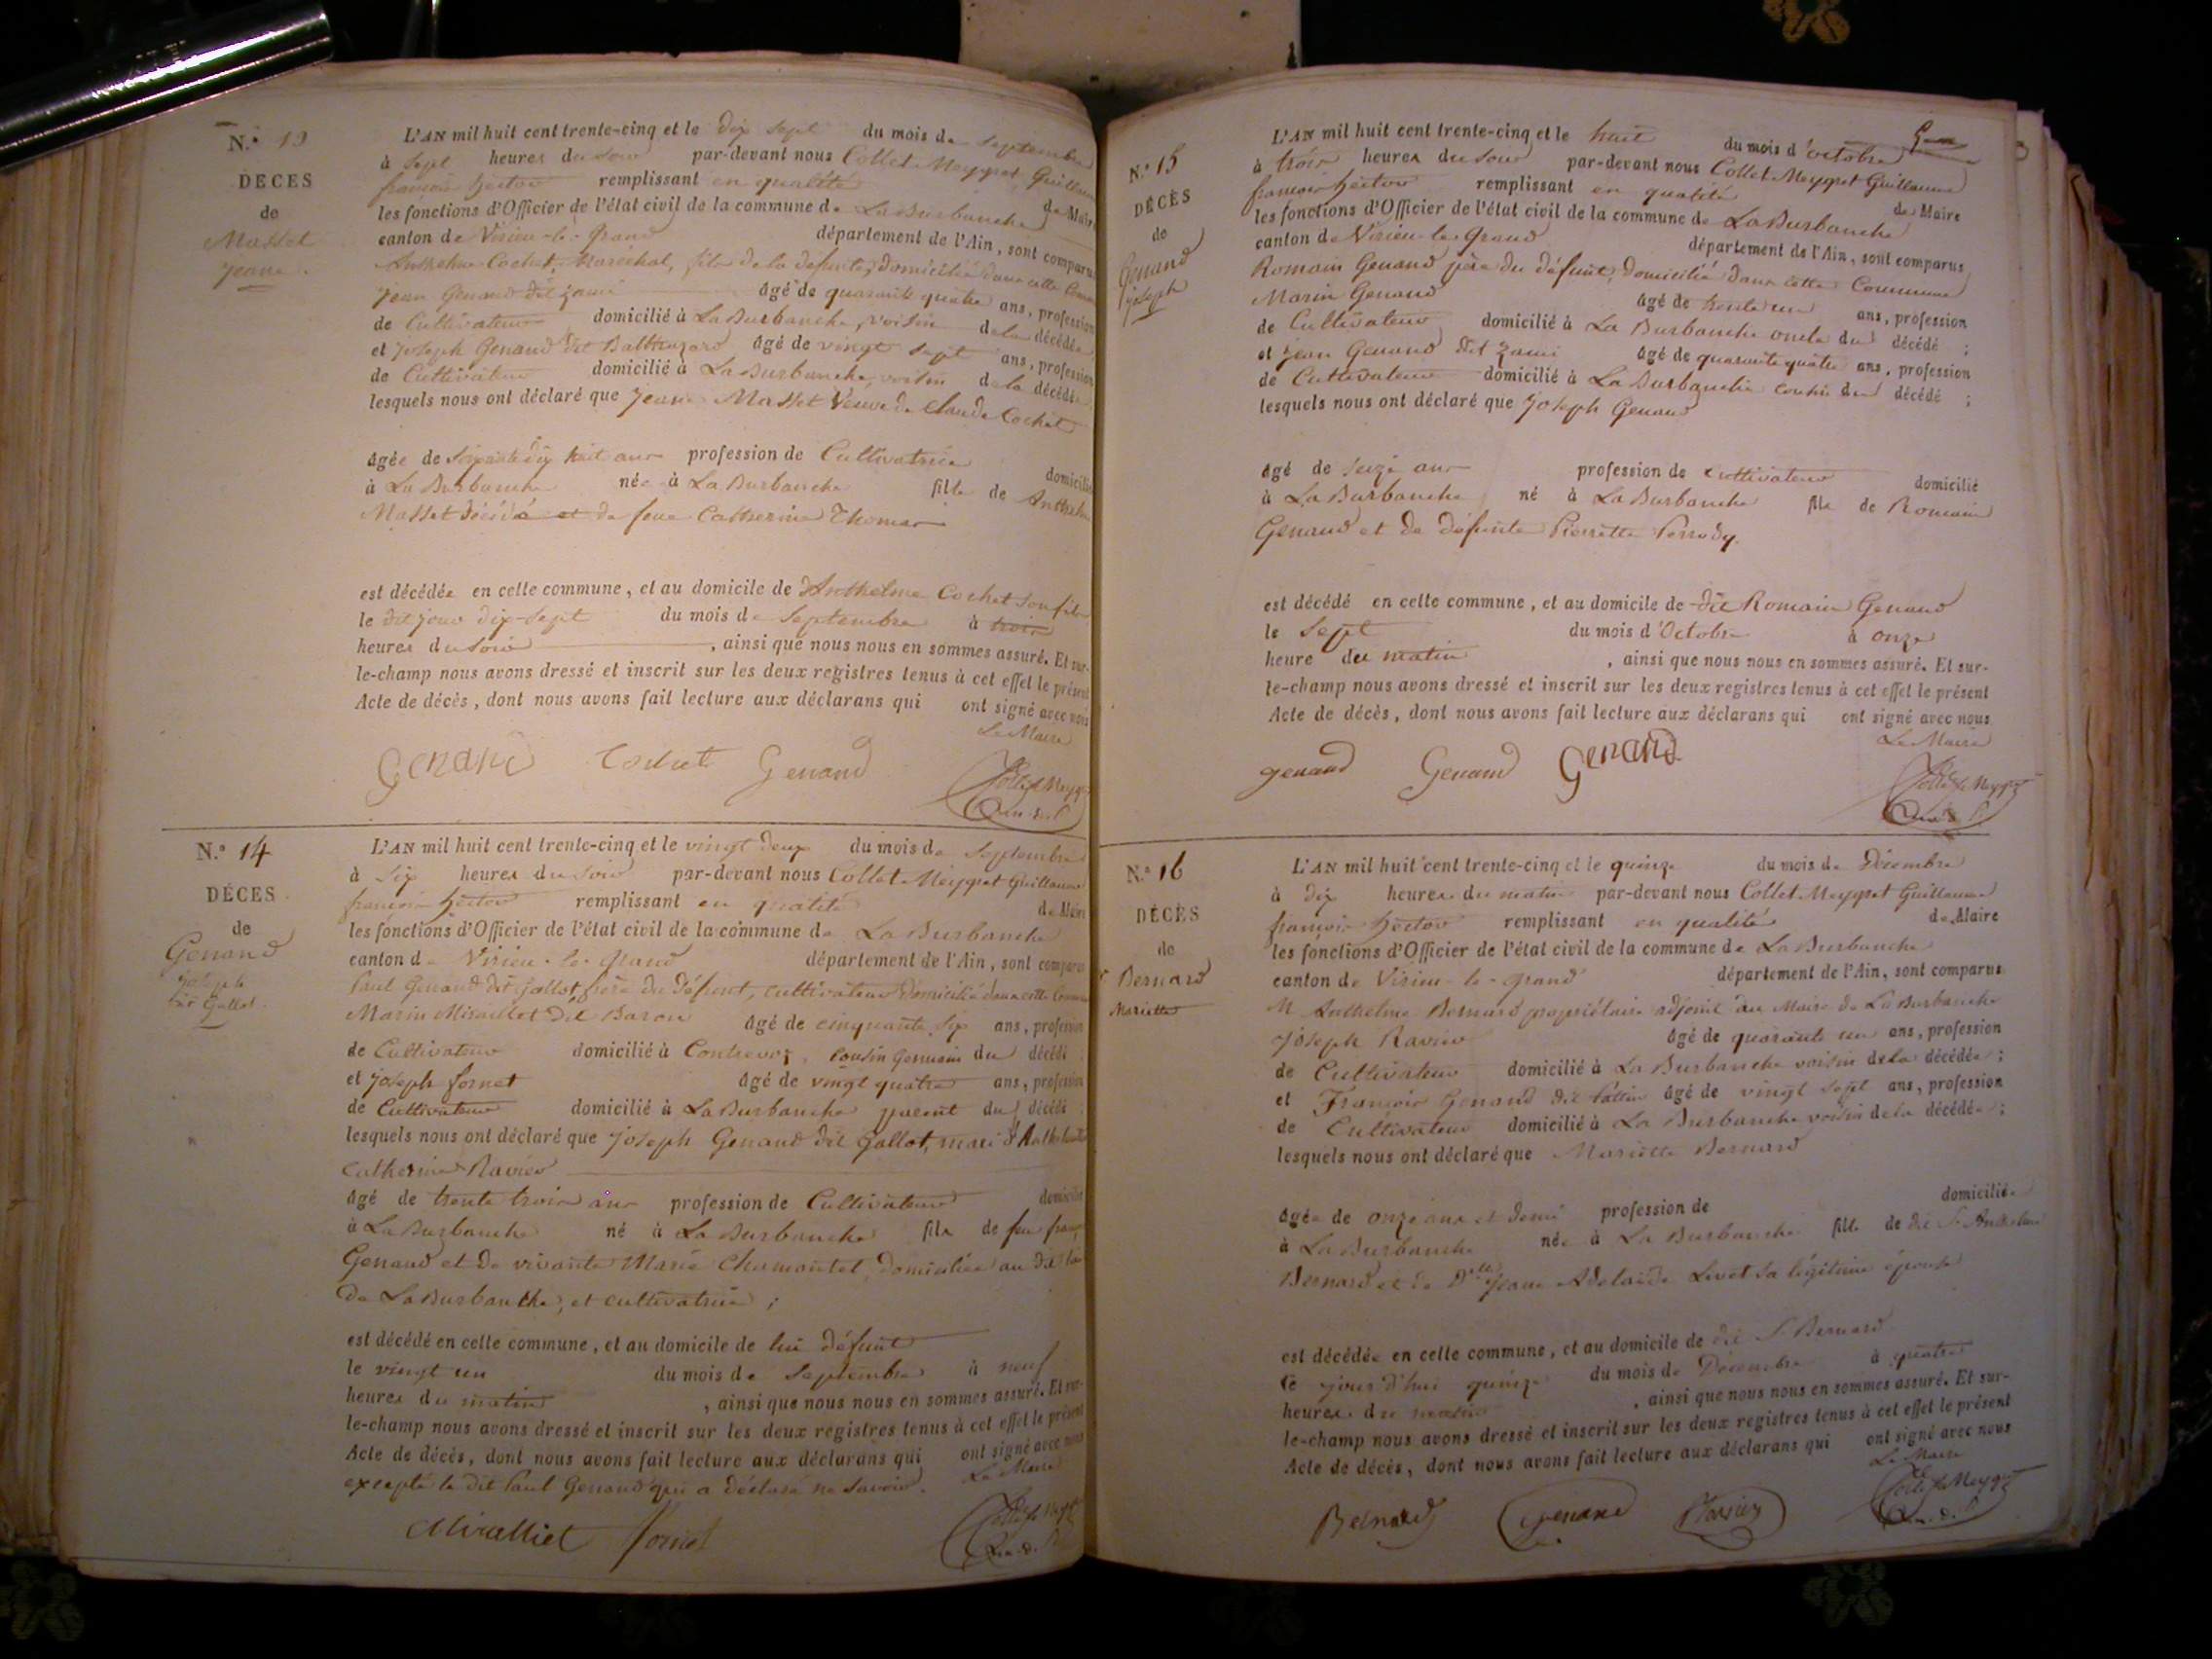 N.° 13
DÉCES
de
Masset
jeane.
L'AN mil huit cent trente-cinq et le dix sept du mois de septembre
à sept heures du soir par-devant nous Collet-Meygret Guillaume
françois hector remplissant en qualité de Maire
les fonctions d'Officier de l'état civil de la commune de La Burbanche
canton de Virieu-le-grand département de l'Ain, sont comparus
Anthelme Cochet, Maréchal, fils de la défunte, domicilié dans cette Commune
jean Genand dit zami âgé de quarante quatre ans, profession
de Cultivateur domicilié à La Burbanche, voisin de la décédée,
et joseph Genand dit Balthazard âgé de vingt sept ans, profession
de Cultivateur domicilié à La Burbanche, voisin de la décédée,
lesquels nous ont déclaré que jeane Masset Veuve de Claude Cochet
âgée de soixante dix huit ans profession de Cultivatrice domicilié
à La Burbanche née à La Burbanche fille de Anthelme
Masset décédé et de feue Catherine Thomas
est décédée en cette commune, et au domicile de d'Anthelme Cochet son fils
le dit jour dix-sept du mois de Septembre à trois
heures du soir, ainsi que nous nous en sommes assuré. Et sur-
le-champ nous avons dressé et inscrit sur les deux registres tenus à cet effet le présent
Acte de décès, dont nous avons fait lecture aux déclarans qui ont signé avec nous
Le Maire
Genand Cochet Genand Collet Meygret
N.° 14
DÉCES
de
Genand
joseph
dit Gallot.
L'AN mil huit cent trente-cinq et le vingt deux du mois de Septembre
à six heures du soir par-devant nous Collet-Meygret Guillaume
françois hector remplissant en qualité de Maire
les fonctions d'Officier de l'état civil de la commune de La Burbanche
canton de Virieu-le-grand département de l'Ain, sont comparus
Paul Genand dit gallot, frère du défunt, cultivateur domicilié dans cette Commune
Marin Miraillet dit Baron âgé de cinquante six ans, profession
de Cultivateur domicilié à Contrevoz, cousin germain du décédé
et joseph fornet âgé de vingt quatre ans, profession
de Cultivateur domicilié à La Burbanche parent du décédé
lesquels nous ont déclaré que joseph Genand dit gallot, mari d'
Catherine Ravier
âgé de trente trois ans profession de Cultivateur domicilié
à La Burbanche né à La Burbanche fils de feu
Genand et de vivante Marie Chamontel, domiciliée au dit lieu
de La Burbanche, et cultivatrice;
est décédé en cette commune, et au domicile de lui défunt
le vingt un du mois de Septembre à neuf
heures du matin, ainsi que nous nous en sommes assuré. Et sur-
le-champ nous avons dressé et inscrit sur les deux registres tenus à cet effet le présent
Acte de décès, dont nous avons fait lecture aux déclarans qui ont signé avec nous
excepté le dit Paul Genand qui a déclaré ne savoir. Le Maire
Miralliet fornet
N.° 15
DÉCÈS
de
Genand
joseph
L'AN mil huit cent trente-cinq et le huit du mois d'octobre
à trois heures du soir par-devant nous Collet-Meygret Guillaume
françois hector remplissant en qualité de Maire
les fonctions d'Officier de l'état civil de la commune de La Burbanche
canton de Virieu-le-Grand département de l'Ain, sont comparus
Romain Genand père du défunt, domicilié dans cette Commune
Marin Genand âgé de trente un ans, profession
de Cultivateur domicilié à La Burbanche oncle du décédé;
et jean Genand dit zami âgé de quarante quatre ans, profession
de Cultivateur domicilié à La Burbanche cousin du décédé;
lesquels nous ont déclaré que joseph Genand
âgé de seize ans profession de cultivateur domicilié
à La Burbanche né à La Burbanche fils de Romain
Genand et de défunte Pierrette Perrody.
est décédé en cette commune, et au domicile de dit Romain Genand
le sept du mois d'Octobre à onze
heure du matin, ainsi que nous nous en sommes assuré. Et sur-
le-champ nous avons dressé et inscrit sur les deux registres tenus à cet effet le présent
Acte de décès, dont nous avons fait lecture aux déclarans qui ont signé avec nous
Le Maire
genand Genand Genand Collet Meygret
N.° 16
DÉCÈS
de
Bernard
Mariette
L'AN mil huit cent trente-cinq et le quinze du mois de Décembre
à dix heures du matin par-devant nous Collet-Meygret Guillaume
françois hector remplissant en qualité de Maire
les fonctions d'Officier de l'état civil de la commune de La Burbanche
canton de Virieu-le-grand département de l'Ain, sont comparus
M Anthelme Bernard propriétaire adjoint au Maire de La Burbanche
joseph Ravier âgé de quarante un ans, profession
de Cultivateur domicilié à La Burbanche voisin de la décédée;
et François Genand dit âgé de vingt sept ans, profession
de Cultivateur domicilié à La Burbanche voisin de la décédée;
lesquels nous ont déclaré que Mariette Bernard
âgée de onze ans et demi profession de domiciliée
à La Burbanche née à La Burbanche fille de dit S. Anthelme
Bernard et de Dlle jeane Adelaïde Livet sa légitime épouse
est décédée en cette commune, et au domicile de dit S. Bernard
ce jour d'hui quinze du mois de Décembre à quatre
heures du matin, ainsi que nous nous en sommes assuré. Et sur-
le-champ nous avons dressé et inscrit sur les deux registres tenus à cet effet le présent
Acte de décès, dont nous avons fait lecture aux déclarans qui ont signé avec nous
Le Maire
Bernard Genand Ravier Collet Meygret